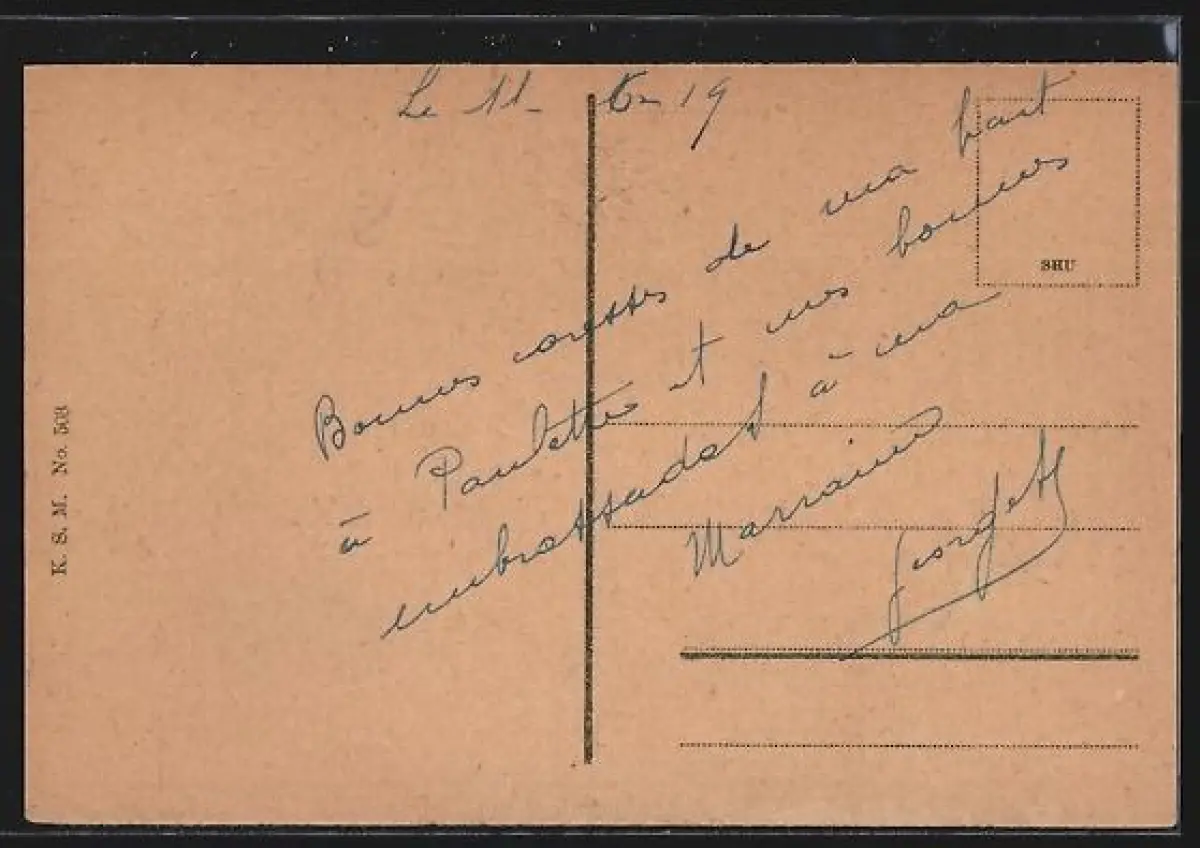 Le 11 - 6 - 19
Bonnes caresses de ma part
à Paulette et mes bonnes
embrassades à ma
Marraine
Georgette
SHU
K. S. M. No. 503